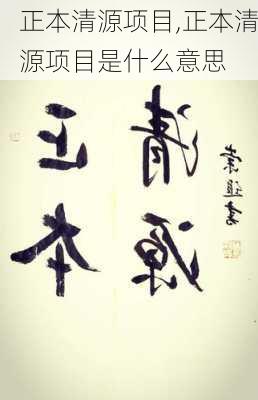 正本清源项目,正本清
源项目是什么意思
正本
清源